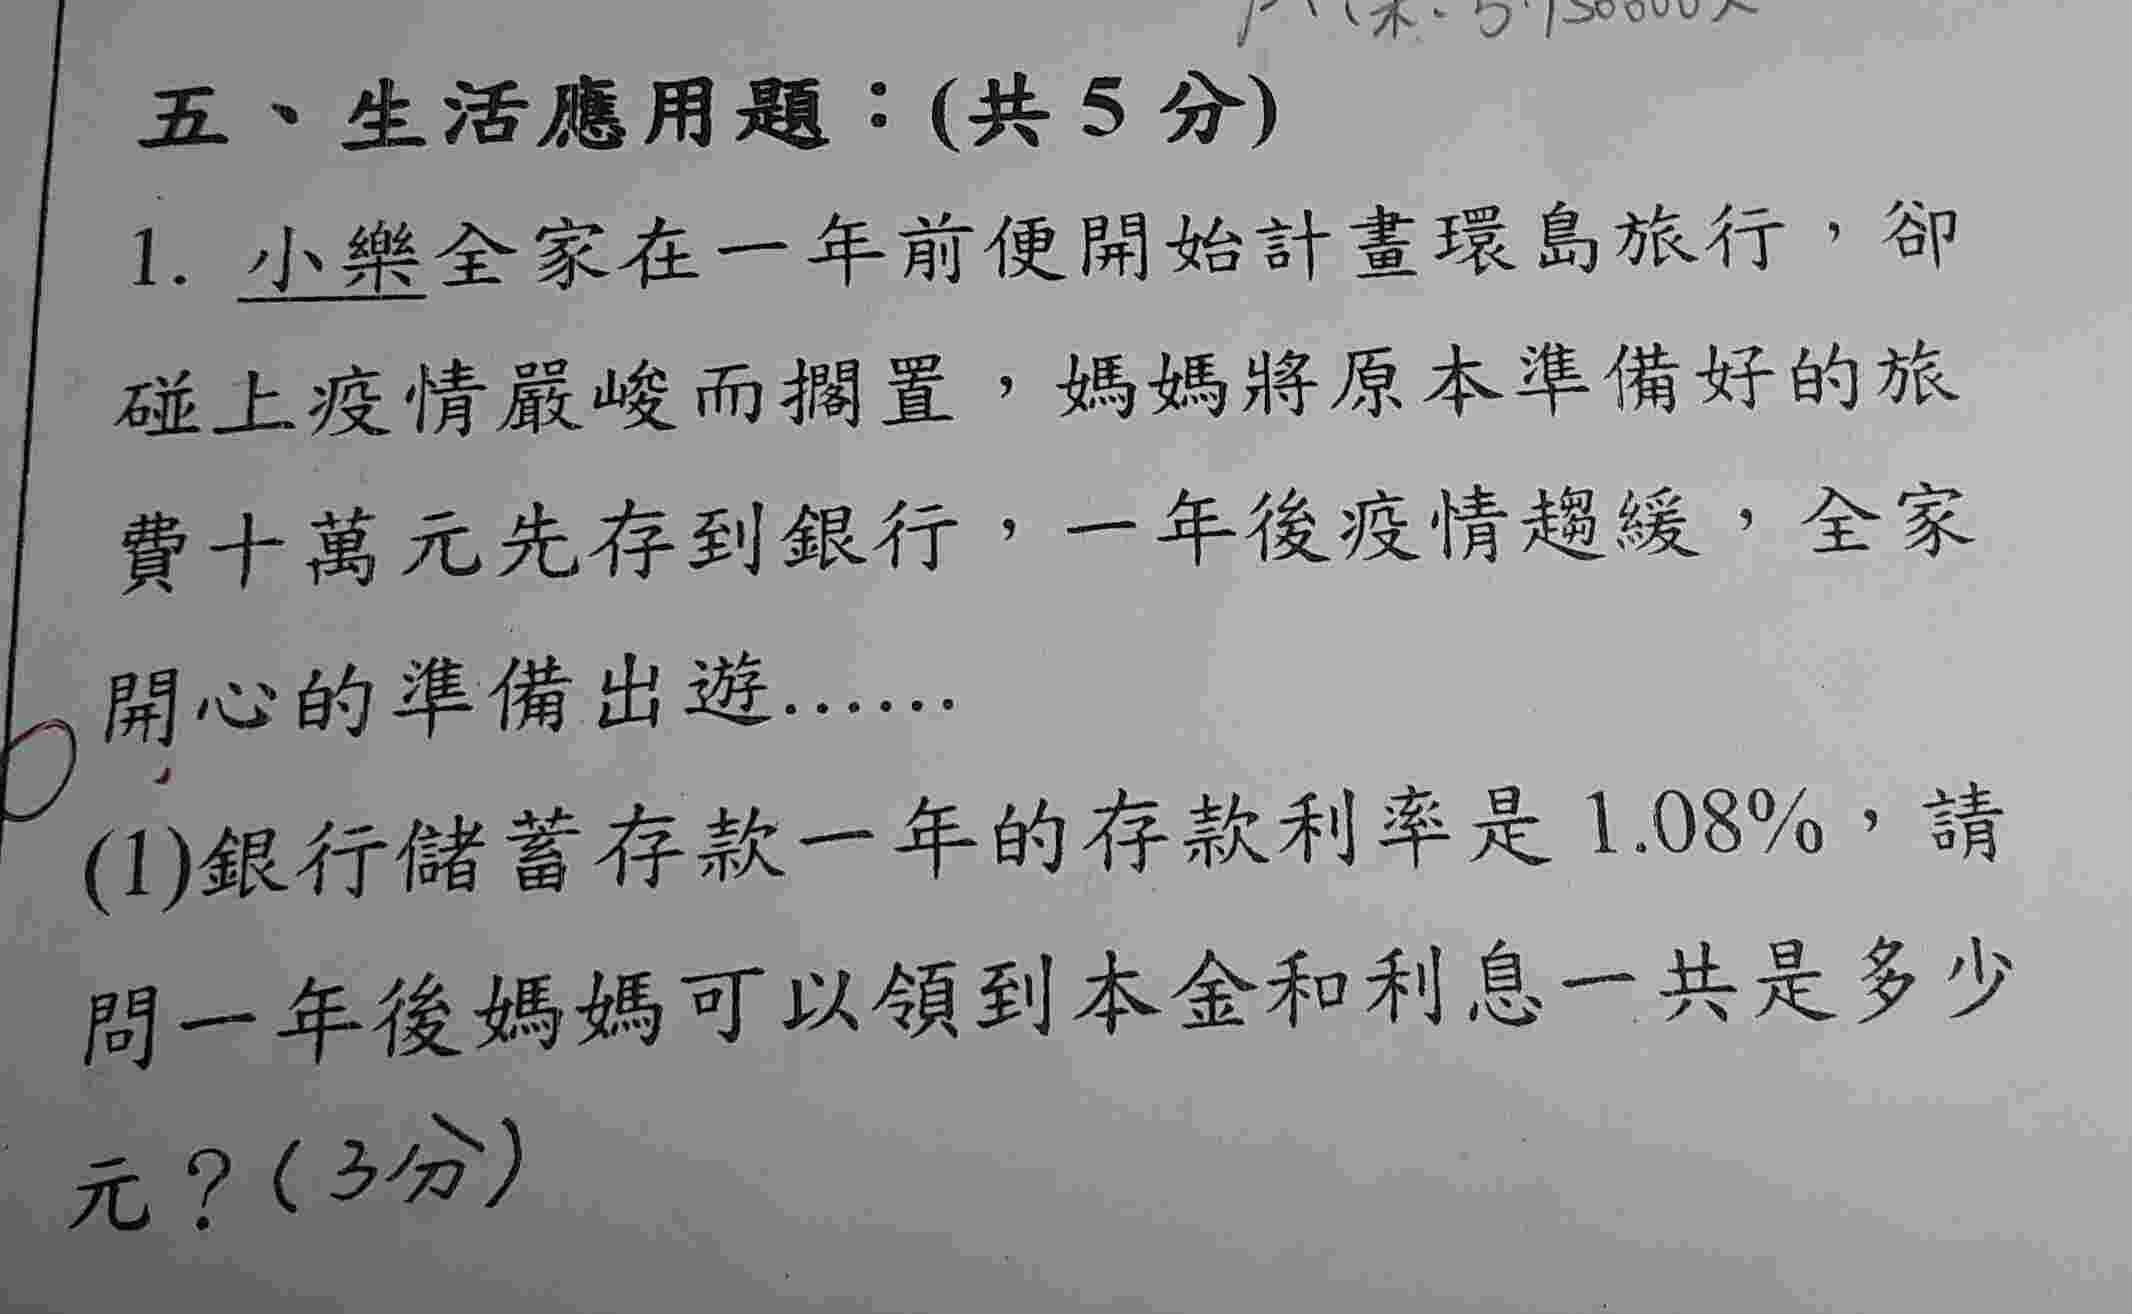 五、生活應用題：(共 5 分)
1. 小樂全家在一年前便開始計畫環島旅行，卻
碰上疫情嚴峻而擱置，媽媽將原本準備好的旅
費十萬元先存到銀行，一年後疫情趨緩，全家
開心的準備出遊......
(1)銀行儲蓄存款一年的存款利率是 1.08%，請
問一年後媽媽可以領到本金和利息一共是多少
元？(3分)